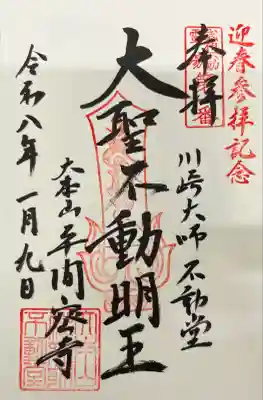 迎春參拝記念
奉拝
川崎大師 不動堂
大聖不動明王
大本山 平間密寺
令和八年 一月九日